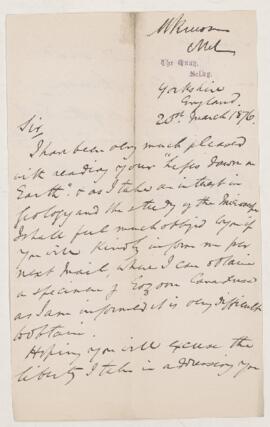 The Quay,
Selby.
Yorkshire
England.
20th March 1876.
Sir
I have been very much pleased
with reading your "Life's Dawn on
Earth" & as I take an interest in
Geology and the study of the Microscope
I shall feel much obliged if
you will kindly inform me per
next Mail, where I can obtain
a specimen of Eozoon Canadense
as I am informed it is very difficult
to obtain.
Hoping you will excuse the
liberty I take in addressing you